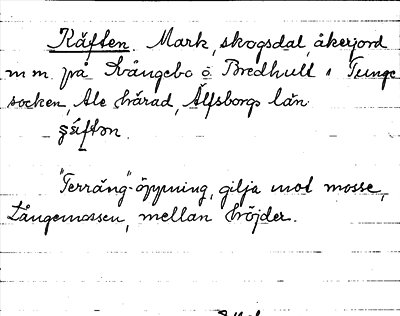 Käften. Mark, skogsdal, åkerjord
m m. på Svängebo o Bredhult i Tunge
socken, Ale härad, Älfsborgs län
"Terräng"-öppning, gilja mot mosse,
Långemossen, mellan höjder.